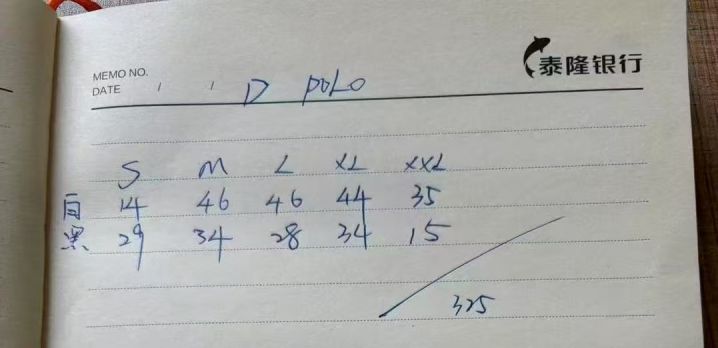 泰隆银行
MEMO NO.
DATE / /
D POLO
S M L XL XXL
白 14 46 46 44 35
黑 29 34 28 34 15
325